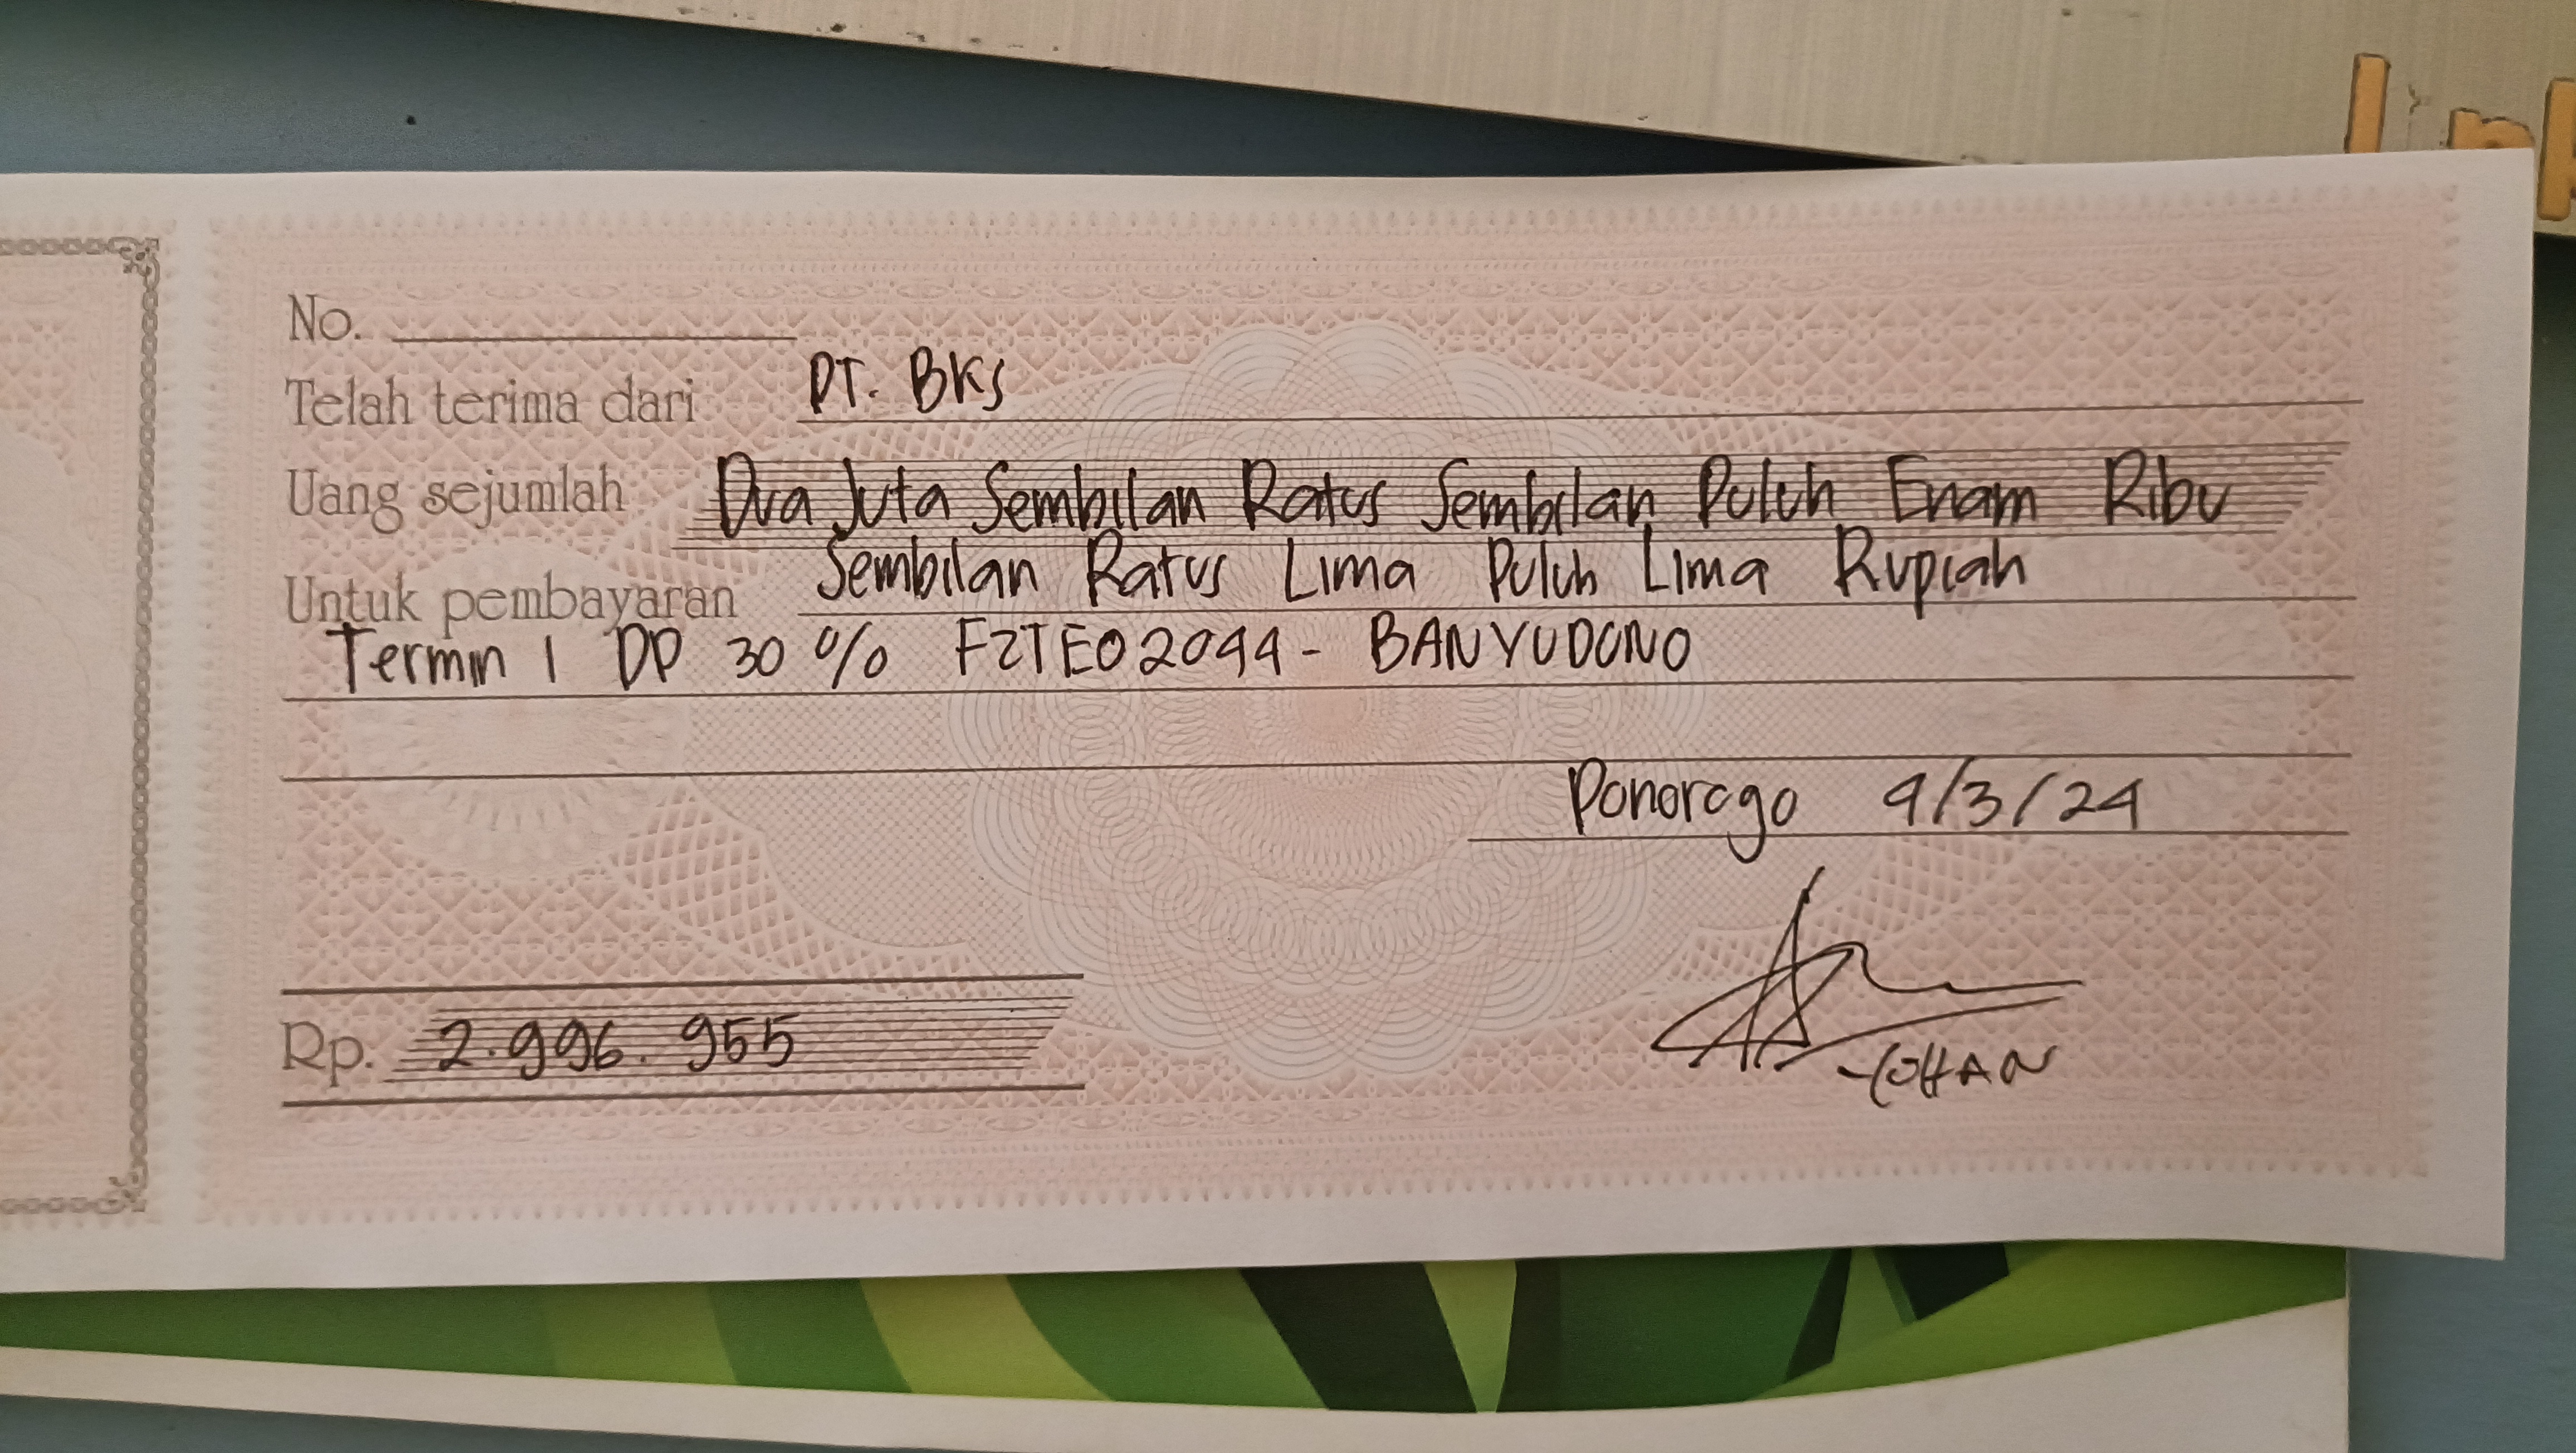 No.
Telah terima dari PT. BKS
Uang sejumlah Dua Juta Sembilan Ratus Sembilan Puluh Enam Ribu
Sembilan Ratus Lima Puluh Lima Rupiah
Untuk pembayaran
Termin 1 DP 30% FZTE02044 - BANYUDONO
Ponorogo 4/3/24
Rp. 2.996.955
YOHAN